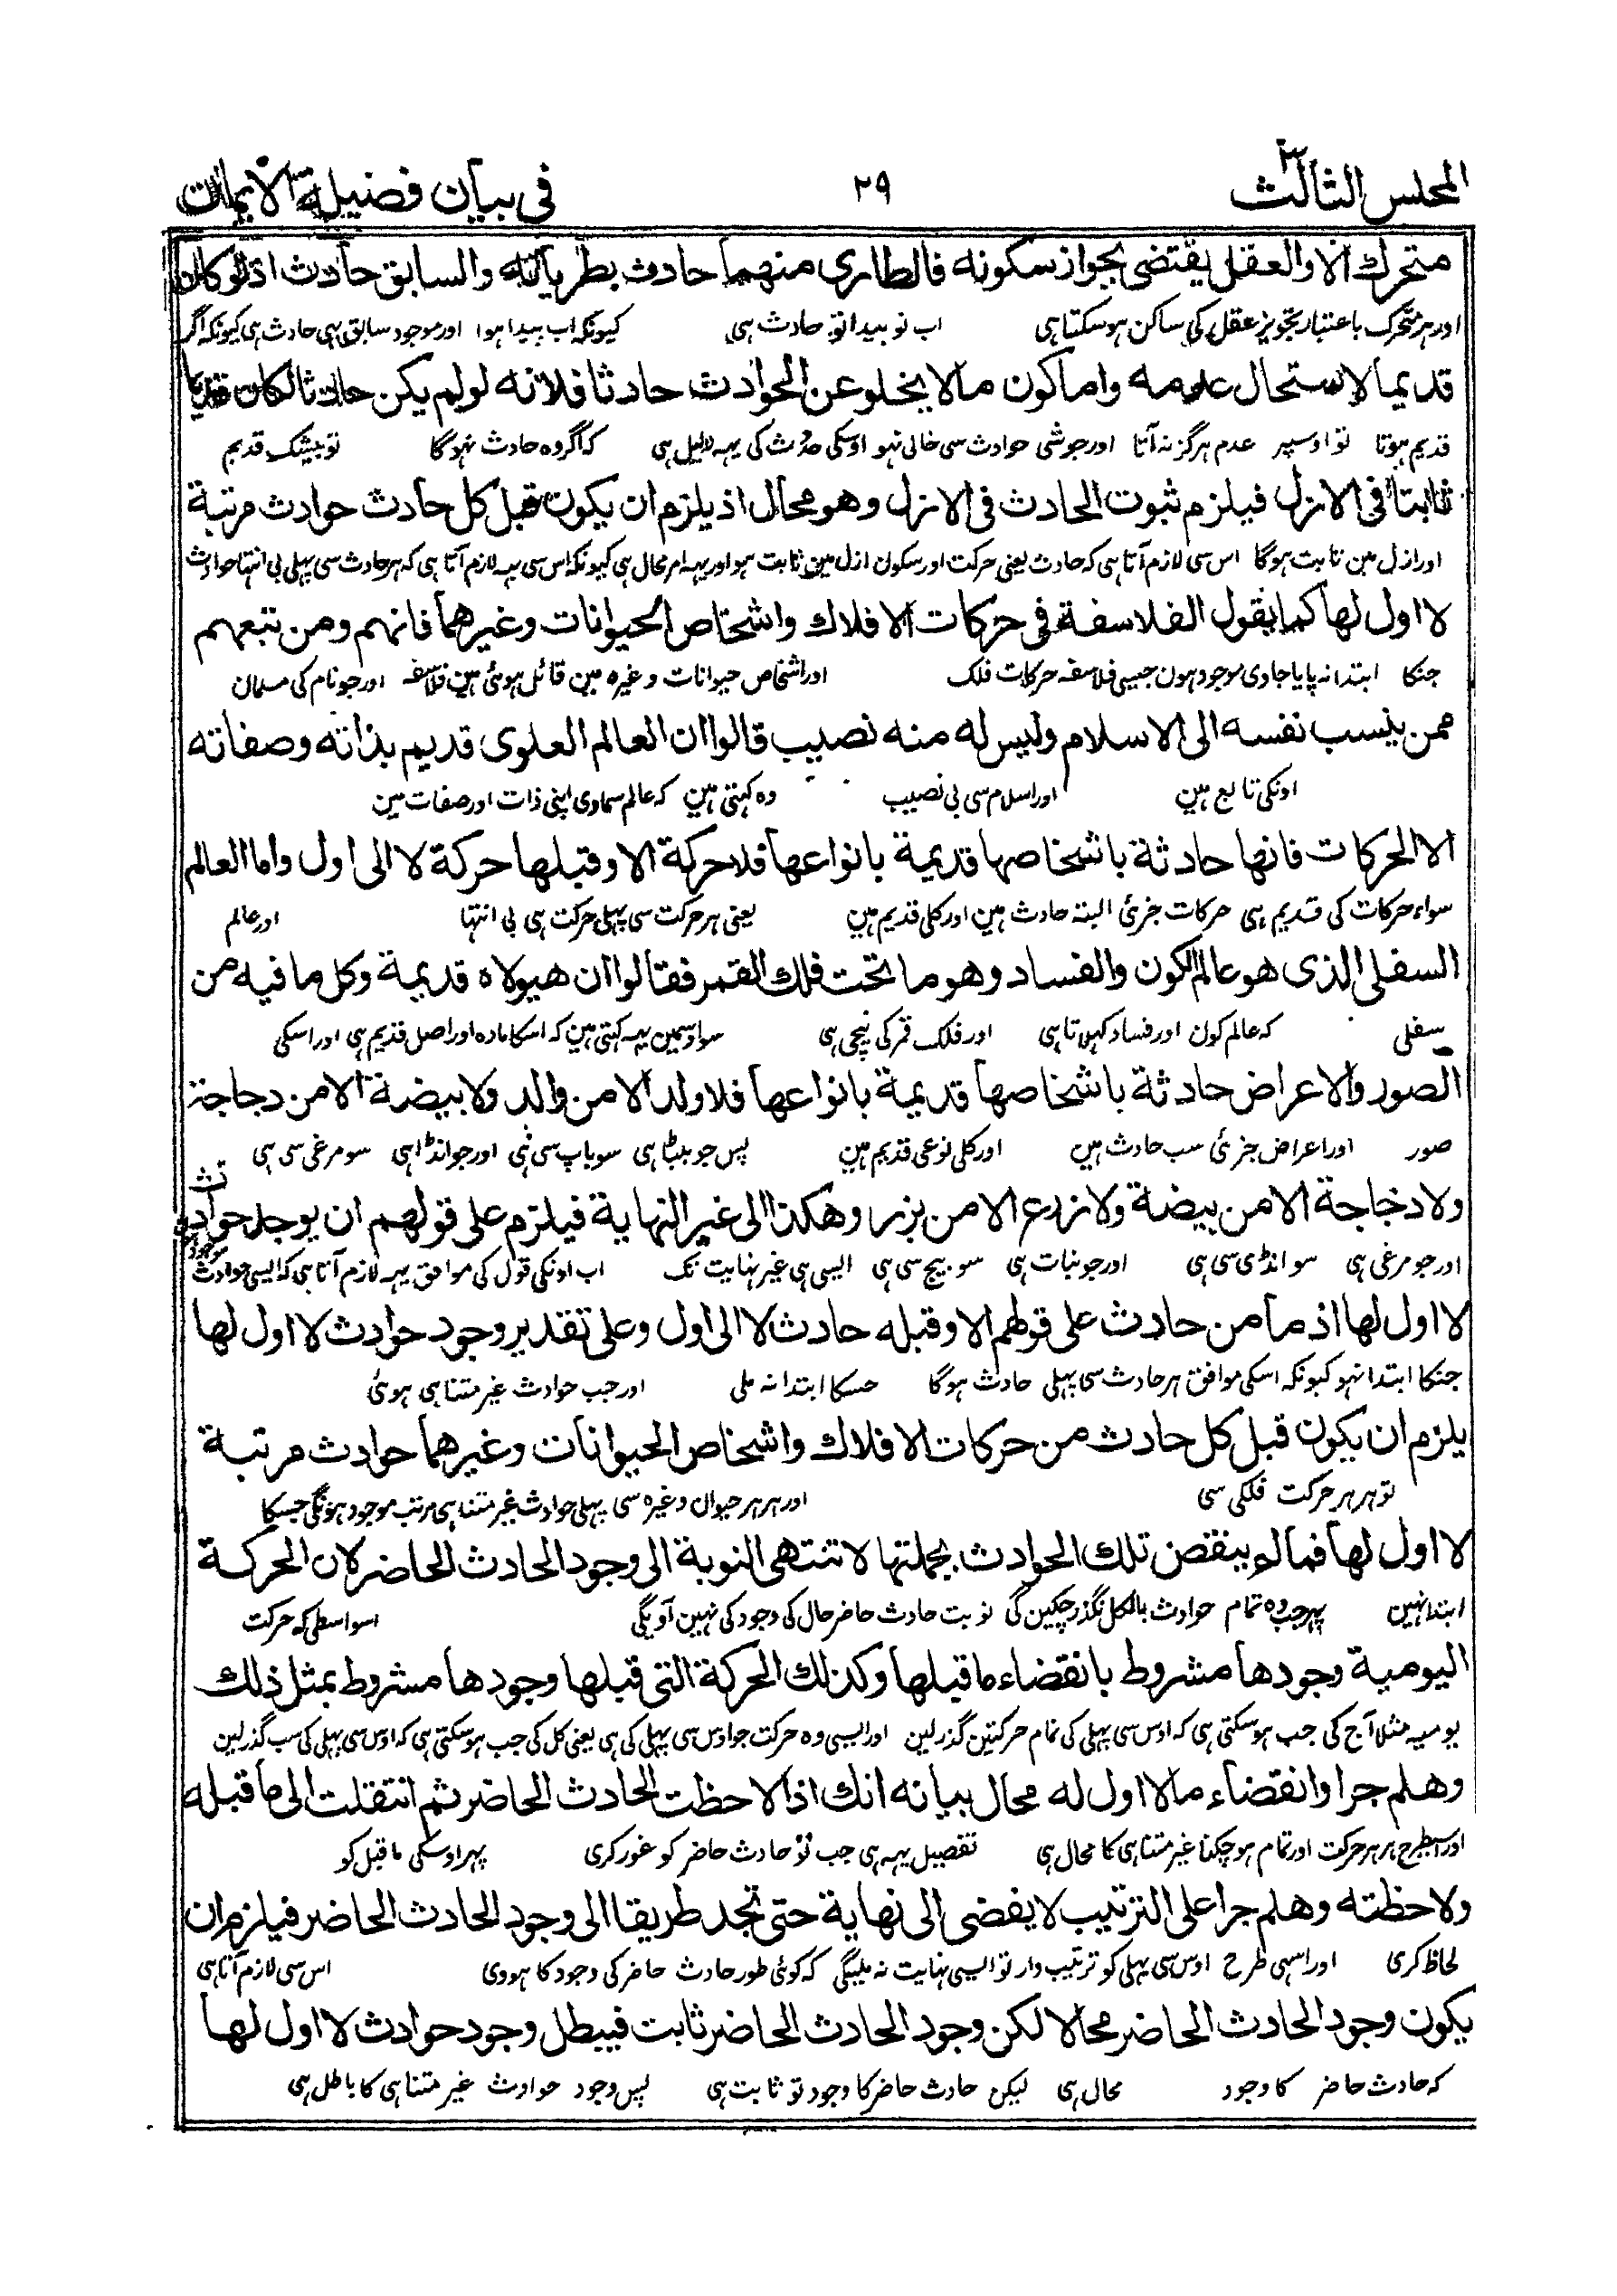 المجلس الثالث ٣
٢٩
في بيان فضيلة الايمان
متحرك الا والعقل يقتضى بجواز سكونه فالطارى منهما حادث بطريانه والسابق حادث اذ لو كان
اور ہر متحرک باعتبار تجویز عقل کی ساکن ہوسکتا ہی اب نو پیدا تو حادث ہی کیونکہ اب پیدا ہوا اور موجود سابق بہی حادث ہی کیونکہ اگر
قديما لاستحال عدمه واما كون مالا يخلو عن الحوادث حادثا فلانه لو لم يكن حادثا لكان قديما
قدیم ہوتا تو اوسپر عدم ہرگز نہ آتا اور جو شی حوادث سی خالی نہو اوسکی حدوث کی یہہ دلیل ہی کہ اگر وہ حادث نہوگا تو بیشک قدیم
ثابتا فى الازل فيلزم ثبوت الحادث فى الازل وهو محال اذ يلزم ان يكون قبل كل حادث حوادث مرتبة
اور ازل مین ثابت ہوگا اس سی لازم آتا ہی کہ حادث یعنی حرکت اور سکون ازل مین ثابت ہو اور یہہ امر محال ہی کیونکہ اس سی یہہ لازم آتا ہی کہ ہر حادث سی پہلی بی انتہا حوادث
لا اول لها كما يقول الفلاسفة فى حركات الافلاك واشخاص الحيوانات وغيرهما فانهم ومن تبعهم
جنکا ابتدا نہ پایا جاوی موجود ہون جیسی فلاسفہ حرکات فلک اور اشخاص حیوانات وغیرہ مین قائل ہوئی ہین فلاسفہ اور جو نام کی مسلمان
ممن ينسب نفسه الى الاسلام وليس له منه نصيب قالوا ان العالم العلوى قديم بذاته وصفاته
اونکی تابع ہین اور اسلام سی بی نصیب وہ کہتی ہین کہ عالم سماوی اپنی ذات اور صفات مین
الا الحركات فانها حادثة باشخاصها قديمة بانواعها فلا حركة الا وقبلها حركة لا الى اول واما العالم
سواء حرکات کی قدیم ہی حرکات جزئ البتہ حادث ہین اور کلی قدیم ہین یعنی ہر حرکت سی پہلی حرکت ہی بی انتہا اور عالم
السفلى الذى هو عالم الكون والفساد وهو ما تحت فلك القمر فقالوا ان هيولاه قديمة وكل ما فيه من
سفلی کہ عالم کون اور فساد کہلاتا ہی اور فلک قمر کی نیچی ہی سو اوسمین یہہ کہتی ہین کہ اسکا مادہ اور اصل قدیم ہی اور اسکی
الصور والاعراض حادثة باشخاصها قديمة بانواعها فلا ولد الا من والد ولا بيضة الا من دجاجة
صور اور اعراض جزئ سب حادث ہین اور کلی نوعی قدیم ہین پس جو بیٹا ہی سو باپ سی ہی اور جو انڈا ہی سو مرغی سی ہی
ولا دجاجة الا من بيضة ولا زرع الا من بزر وهكذا الى غير النهاية فيلزم على قولهم ان يوجد حوادث
اور جو مرغی ہی سو انڈی سی ہی اور جو نبات ہی سو بیج سی ہی ایسی ہی غیر نہایت تک اب اونکی قول کی موافق یہہ لازم آتا ہی کہ ایسی حوادث موجود ہو
لا اول لها اذ ما من حادث على قولهم الا وقبله حادث لا الى اول وعلى تقدير وجود حوادث لا اول لها
جنکا ابتدا نہو کیونکہ اسکی موافق ہر حادث سی پہلی حادث ہوگا جسکا ابتدا نہ ملی اور جب حوادث غیر متناہی ہوئی
يلزم ان يكون قبل كل حادث من حركات الافلاك واشخاص الحيوانات وغيرهما حوادث مرتبة
تو ہر ہر حرکت فلکی سی اور ہر ہر حیوان وغیرہ سی پہلی حوادث غیر متناہی مرتب موجود ہونگی جسکا
لا اول لها فمالم ينقض تلك الحوادث بجملتها لا تنتهى النوبة الى وجود الحادث الحاضر لان الحركة
ابتدا نہین پہر جب وہ تمام حوادث بالکل نگذر چکین گی نوبت حادث حاضر حال کی وجود کی نہین آویگی اسواسطی کہ حرکت
اليومية وجودها مشروط بانقضاء ما قبلها وكذلك الحركة التى قبلها وجودها مشروط بمثل ذلك
یومیہ مثلا آج کی جب ہوسکتی ہی کہ اوس سی پہلی کی تمام حرکتین گذر لین اور ایسی وہ حرکت جو اوس سی پہلی کی ہی یعنی کل کی جب ہوسکتی ہی کہ اوس سی پہلی کی سب گذر لین
وهلم جرا وانقضاء مالا اول له محال بيانه انك اذا لاحظت الحادث الحاضر ثم انتقلت الى ما قبله
اور اسیطرح ہر ہر حرکت اور تمام ہو چکنا غیر متناہی کا محال ہی تفصیل یہہ ہی جب تو حادث حاضر کو غور کری پہر اوسکی ماقبل کو
ولاحظته وهلم جرا على الترتيب لا يفضى الى نهاية حتى تجد طريقا الى وجود الحادث الحاضر فيلزم ان
لحاظ کری اور اسہی طرح اوس سی پہلی کو ترتیب دار تو ایسی نہایت نہ ملیگی کہ کوئی طور حادث حاضر کی وجود کا ہووی اس سی لازم آتا ہی
يكون وجود الحادث الحاضر محالا لكن وجود الحادث الحاضر ثابت فيبطل وجود حوادث لا اول لها
کہ حادث حاضر کا وجود محال ہی لیکن حادث حاضر کا وجود تو ثابت ہی پس وجود حوادث غیر متناہی کا باطل ہی